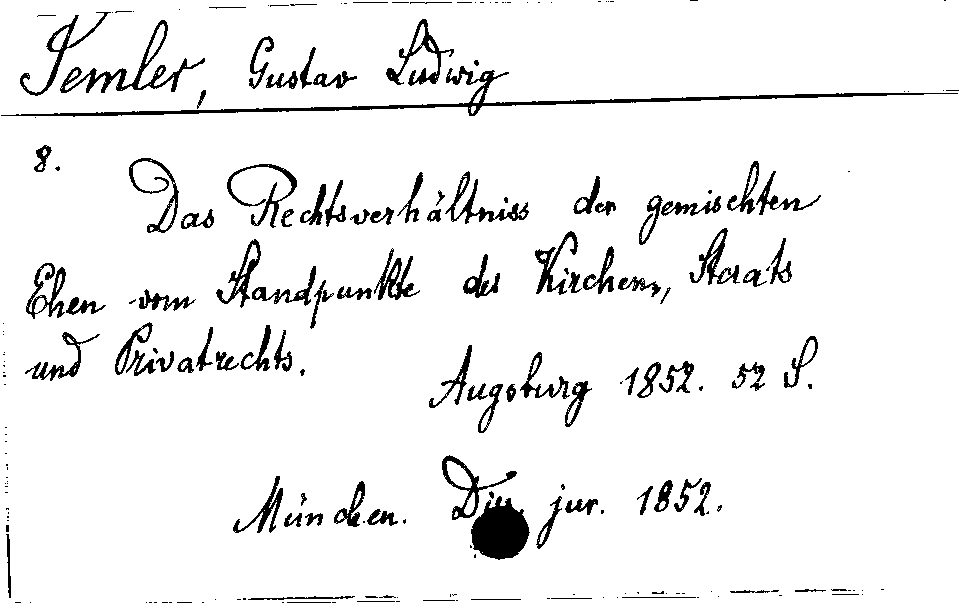 Semler, Gustav Ludwig
8.
Das Rechtsverhältniss der gemischten
Ehen vom Standpunkte des Kirchen-, Staats
und Privatrechts.
Augsburg 1852. 52 S.
München. Diss. jur. 1852.